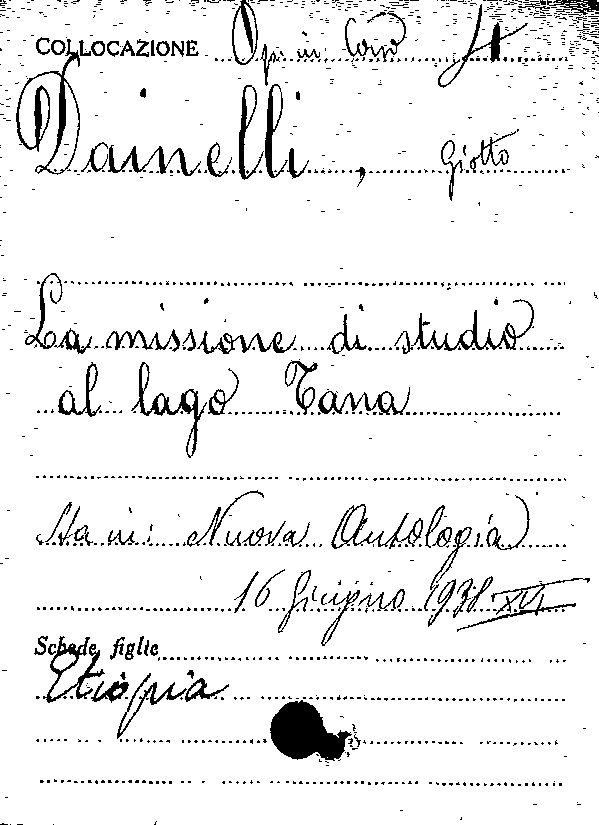 COLLOCAZIONE Op. in Corso
Dainelli, Giotto
La missione di studio
al lago Tana
Sta in: Nuova Antologia
16 Giugno 1938 XVI
Schede figlie
Etiopia